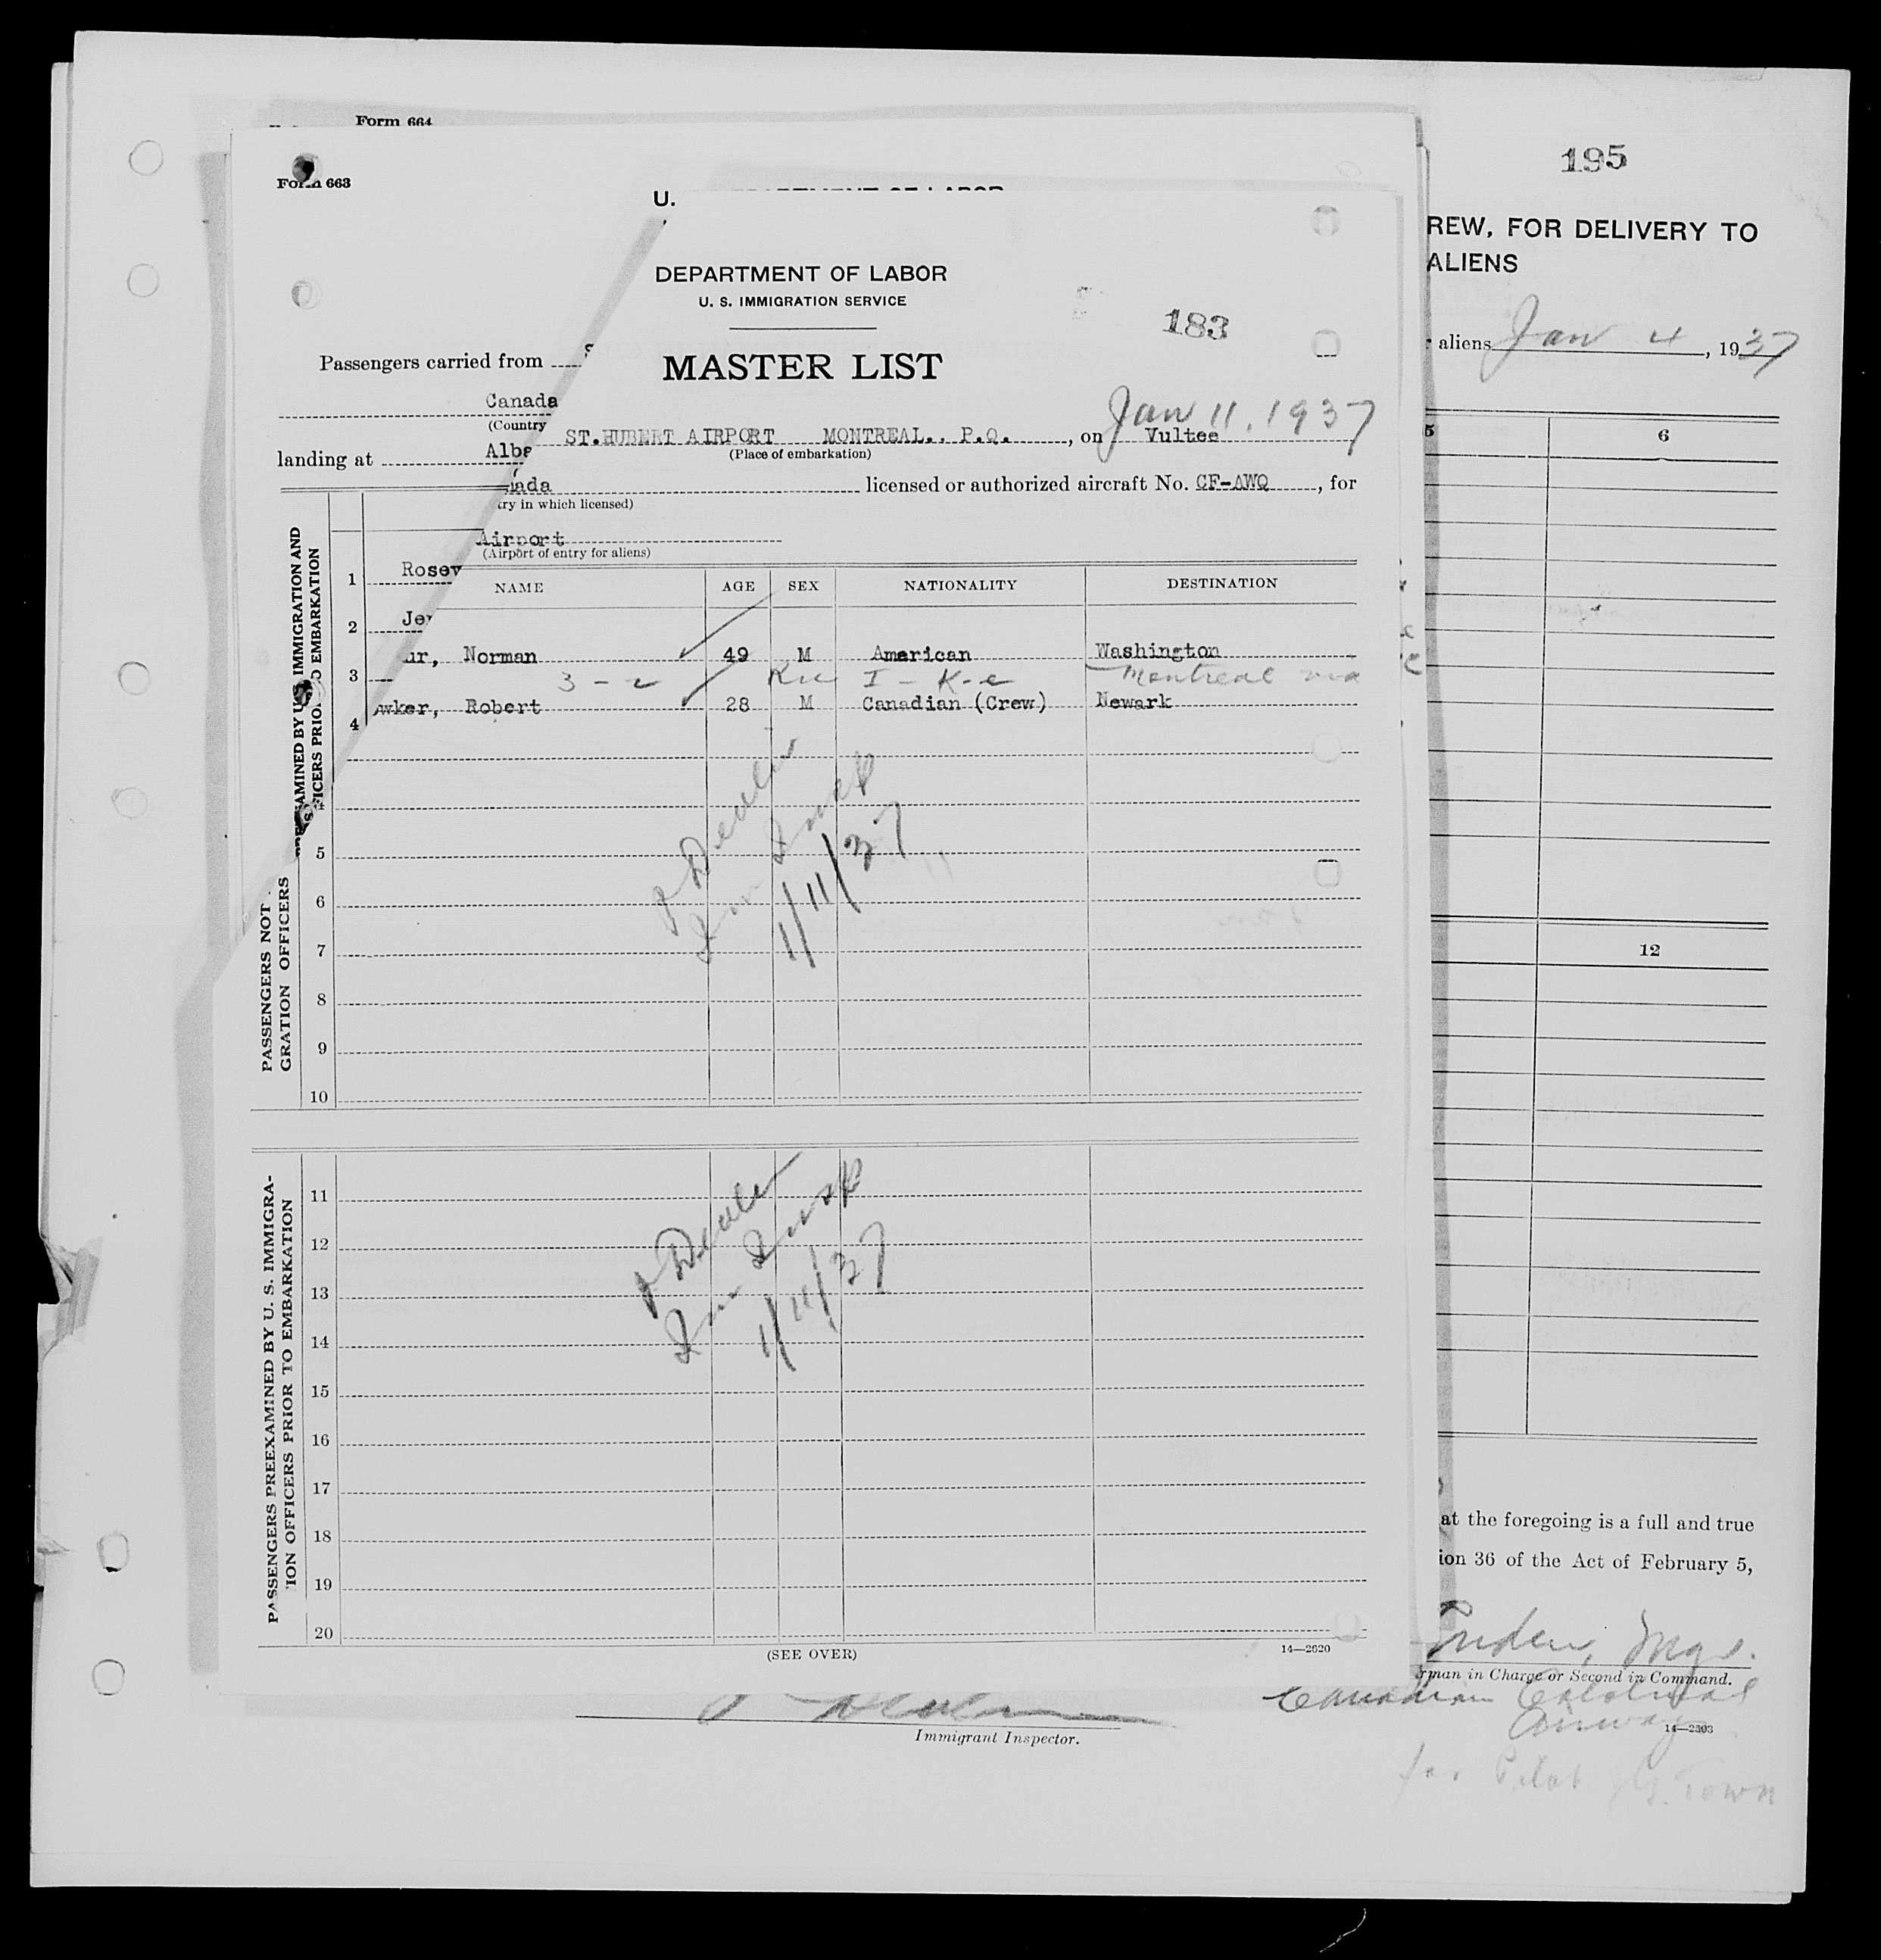 Form 664
195
Form 663
U.
REW, FOR DELIVERY TO
ALIENS
DEPARTMENT OF LABOR
U. S. IMMIGRATION SERVICE
183
aliens Jan 4, 1937
Passengers carried from
MASTER LIST
Canada
Jan 11, 1937
(Country
ST.HUBERT AIRPORT MONTREAL., P.Q., on Vultee
(Place of embarkation)
landing at
licensed or authorized aircraft No. CF-AWQ, for
ry in which licensed)
Airport
(Airport of entry for aliens)
5 6
NAME AGE SEX NATIONALITY DESTINATION
1
2
ur, Norman 49 M American Washington
3
3 - 2 Montreal
wker, Robert 28 M Canadian (Crew) Newark
4
1/11/37
4
5
6
7
8
9
10
12
PASSENGERS NOT
GRATION OFFICERS
11
12
13
14
15
16
17
18
19
20
1/11/37
PASSENGERS PREEXAMINED BY U. S. IMMIGRA-
ION OFFICERS PRIOR TO EMBARKATION
(SEE OVER)
14—2620
at the foregoing is a full and true
ion 36 of the Act of February 5,
Mgr.
rman in Charge or Second in Command.
Canadian Colonial
Airways
14—2303
for Pilot Town
Immigrant Inspector.